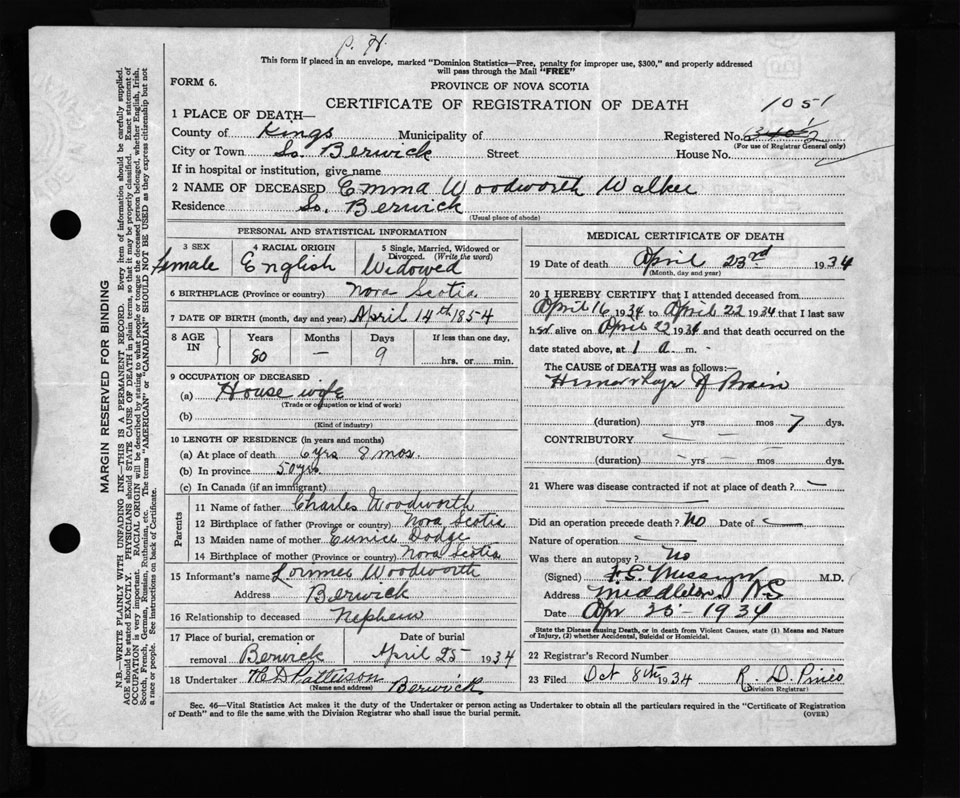 P. H.
This form if placed in an envelope, marked "Dominion Statistics—Free, penalty for improper use, $300," and properly addressed
will pass through the Mail "FREE"
FORM 6.
PROVINCE OF NOVA SCOTIA
CERTIFICATE OF REGISTRATION OF DEATH
1051
1 PLACE OF DEATH—
County of Kings Municipality of Registered No.
(For use of Registrar General only)
City or Town So. Berwick Street House No.
If in hospital or institution, give name
2 NAME OF DECEASED Emma Woodworth Walker
Residence So. Berwick
(Usual place of abode)
PERSONAL AND STATISTICAL INFORMATION
3 SEX 4 RACIAL ORIGIN 5 Single, Married, Widowed or
Divorced. (Write the word)
Female English Widowed
6 BIRTHPLACE (Province or country) Nova Scotia
7 DATE OF BIRTH (month, day and year) April 14th 1854
8 AGE IN Years Months Days If less than one day,
80 — 9 hrs. or min.
9 OCCUPATION OF DECEASED
(a) House wife
(Trade or occupation or kind of work)
(b)
(Kind of industry)
10 LENGTH OF RESIDENCE (in years and months)
(a) At place of death 6 yrs 8 mos.
(b) In province 50 yrs
(c) In Canada (if an immigrant)
Parents
11 Name of father Charles Woodworth
12 Birthplace of father (Province or country) Nova Scotia
13 Maiden name of mother Eunice Dodge
14 Birthplace of mother (Province or country) Nova Scotia
15 Informant's name Woodworth
Address Berwick
16 Relationship to deceased Nephew
17 Place of burial, cremation or Date of burial
removal Berwick April 25 1934
18 Undertaker Patterson Berwick
(Name and address)
MEDICAL CERTIFICATE OF DEATH
19 Date of death April 23rd 1934
(Month, day and year)
20 I HEREBY CERTIFY that I attended deceased from
April 16 1934 to April 22 1934 that I last saw
her alive on April 22 1934 and that death occurred on the
date stated above, at 1 a. m.
The CAUSE of DEATH was as follows:
of Brain
(duration) yrs mos 7 dys.
CONTRIBUTORY
(duration) yrs mos dys.
21 Where was disease contracted if not at place of death? —
Did an operation precede death? No Date of
Nature of operation
Was there an autopsy? No
(Signed) M.D.
Address Middleton N S
Date Apr 25 - 1934
State the Disease causing Death, or in death from Violent Causes, state (1) Means and Nature
of Injury, (2) whether Accidental, Suicidal or Homicidal.
22 Registrar's Record Number
23 Filed Oct 8th 1934 R. D.
(Division Registrar)
Sec. 46—Vital Statistics Act makes it the duty of the Undertaker or person acting as Undertaker to obtain all the particulars required in the "Certificate of Registration
of Death" and to file the same with the Division Registrar who shall issue the burial permit.
(OVER)
MARGIN RESERVED FOR BINDING
N.B.—WRITE PLAINLY WITH UNFADING INK—THIS IS A PERMANENT RECORD. Every item of information should be carefully supplied.
AGE should be stated EXACTLY. PHYSICIANS should STATE CAUSE OF DEATH in plain terms, so that it may be properly classified. Exact statement of
OCCUPATION is very important. RACIAL ORIGIN will be described by stating to what people or tongue the deceased person belonged, whether English, Irish,
Scotch, French, German, Russian, Ruthenian, etc. The terms "AMERICAN" or "CANADIAN" SHOULD NOT BE USED as they express citizenship but not
a race or people. See instructions on back of Certificate.